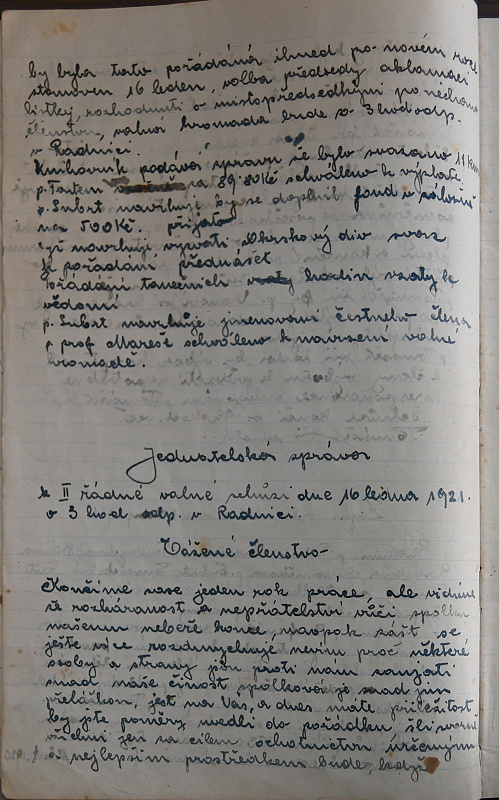 by byla tato pořádána ihned po novém roce
stanoven 16 leden, volba předsedy aklamací
lístky, rozhodnutí o místopředsedkyni ponecháno
členstvu, valná hromada bude v 3 hod odp.
v Radnici.
Knihovník podává zprávu že bylo svázano 11 knih
p. Tortem za 89.80Kč schváleno k výplatě
p. Šubrt navrhuje by se doplnil fond v záložně
na 500Kč. přijato.
týž navrhuje vyzvati Okrskový div svaz
k pořádání přednášek
Pořádání tanečních hodin vzaty k
vědomí
p. Šubrt navrhuje jmenování čestného člena
p prof Mareše schváleno k navržení valné
hromadě.
Jednatelská zpráva
k II řádné valné schůzi dne 16 ledna 1921.
o 3 hod odp. v Radnici.
Vážené členstvo
Končíme zase jeden rok práce, ale vidíme
že rozháranost a nepřátelství vůči spolku
našemu nebéře konce, naopak zášť se
ještě více rozdmychuje nevím proč některé
osoby a strany jsou proti nám zaujati
snad naše činost spolková je snad jim
překážkou, jest na Vás, a dnes máte příležitost
by jste poměry uvedli do pořádku šli svorně
všichni jen za cílem ochotnictvu určeným
a nejlepším prostředkem bude, když